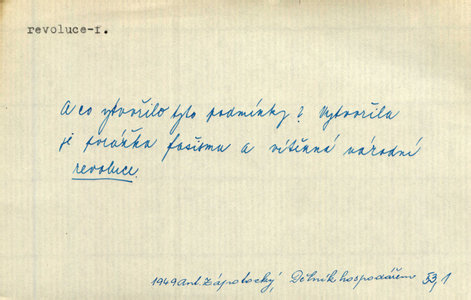 revoluce-f.
A co vytvořilo tyto podmínky? Vytvořila
je porážka fašismu a vítězná národní
revoluce.
1949 Ant. Zápotocký, Dělník hospodářem 53,1